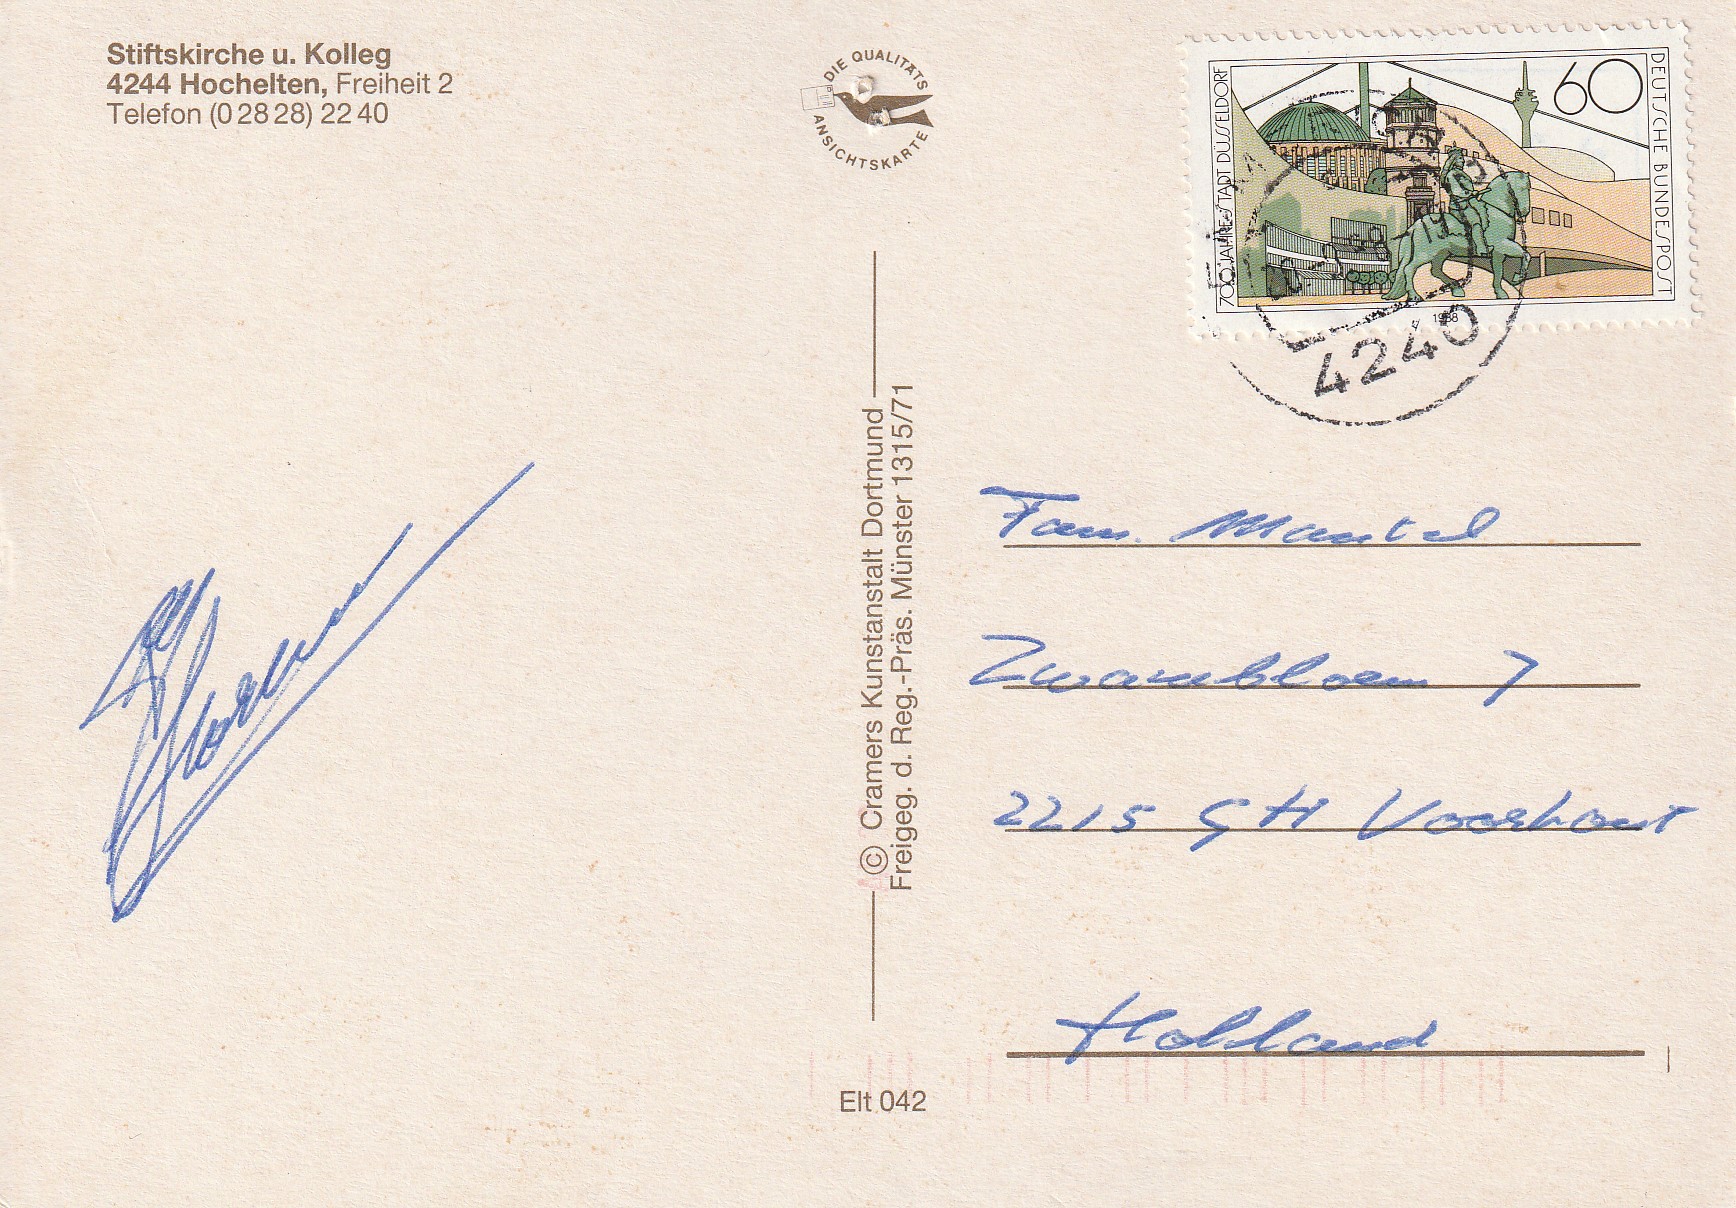 Stiftskirche u. Kolleg
4244 Hochelten, Freiheit 2
Telefon (0 28 28) 22 40
DIE QUALITÄTS
ANSICHTSKARTE
700 JAHRE STADT DÜSSELDORF
60
DEUTSCHE BUNDESPOST
1988
4240
© Cramers Kunstanstalt Dortmund
Freigeg. d. Reg.-Präs. Münster 1315/71
Fam. Mantel
Zwanebloem 7
2215 GH Voorhout
Holland
Elt 042